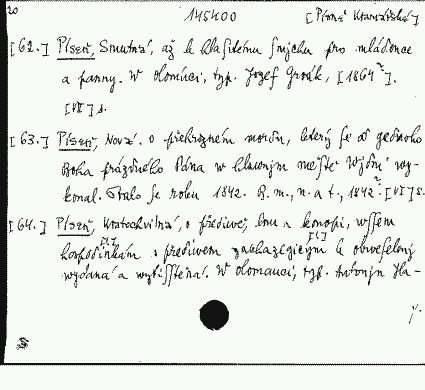 20 145400 [Písně Kramářské]
[62.] Píseň, Smutná, až k hlasitému smjchu pro mládence
a panny. W olomúci, typ. Jozef Groák, [1864?].
[VI] s.
[63.] Píseň, Nová. o přehrozném mordu, který se od gednoho
Boha prázdného Pána w hlawnjm městě Wjdni wy-
konal. Stalo se roku 1842. B. m., n. a t., 1842. [VI] s.
[64.] Píseň, Kratochvilná, o přediwě, lnu a konopi, wssem
hospodinkám s předivem zachazegicým k obweselený
wydaná a wytisstěná. W olomauci, typ. Antonjn Ha-
./.